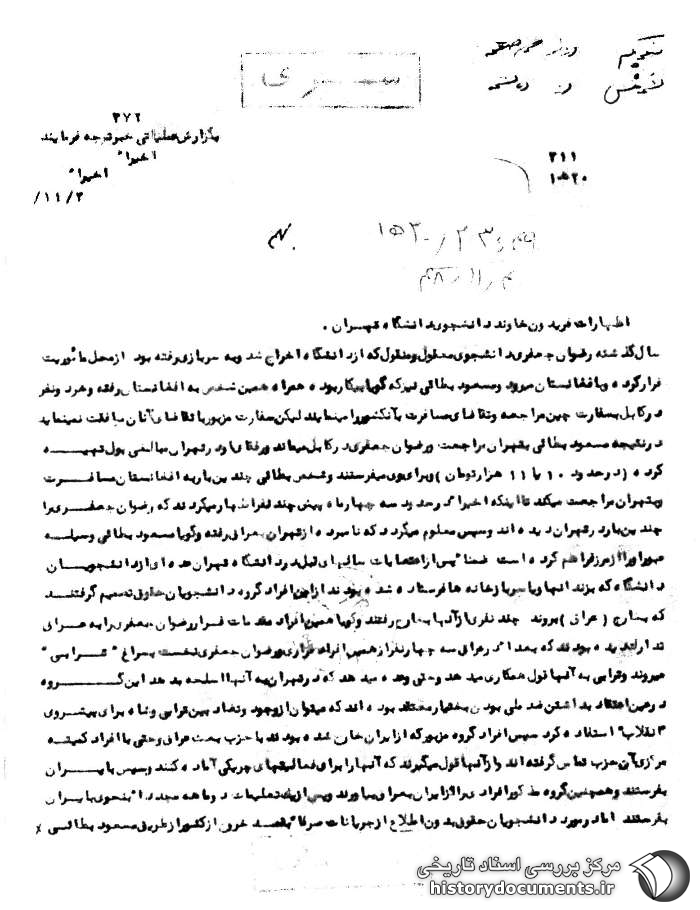 سری
۳۷۲
بگزارش عملیاتی خبر توجه فرمایند
اخیرا"
اخیرا"
/۱۱/۲
۳۱۱
۱۵۲۰
اظهارات فریدون خاوند دانشجوی دانشگاه تهران .
سال گذشته رضوان جعفری دانشجوی معقول و منقول که از دانشگاه اخراج شد و به سربازی رفته بود از محل مأموریت
فرار کرده و بافغانستان میرود و مسعود بطائی نیز که گویا بیکار بوده همراه همین شخص به افغانستان رفته و هر دو نفر
در کابل بسفارت چین مراجعه و تقاضای مسافرت بآنکشور را مینمایند لیکن سفارت مزبور با تقاضای آنان موافقت نمینماید
در نتیجه مسعود بطائی بتهران مراجعت و رضوان جعفری در کابل میماند و رفقای او در تهران مبالغی پول تهیه
کرده ( در حدود ۱۰ یا ۱۱ هزار تومان ) و برای وی میفرستند و شخص بطائی چندین بار به افغانستان مسافرت
و بتهران مراجعت میکند تا اینکه اخیرا" در حدود سه چهار ماه پیش چند نفر اظهار میکردند که رضوان جعفری را
چندین بار در تهران دیده اند و سپس معلوم میگردد که نامبرده از تهران بعراق رفته و گویا مسعود بطائی وسیله
عبور او را از مرز فراهم کرده است ضمنا" پس از اعتصابات سالهای قبل در دانشگاه تهران عده ای از دانشجویان
دانشگاه که بزندانها و یا سربازخانه ها فرستاده شده بودند از این افراد گروه دانشجویان حقوق تصمیم گرفتند
که بخارج ( عراق ) بروند چند نفری از آنها بخارج رفتند و گویا همین افراد مقدمات فرار رضوان جعفری را به عراق
تدارک دیده بودند که بعدا" در عراق سه چهار نفر از همین افراد فراری و رضوان جعفری نخست بسراغ " قرابی "
میروند و قرابی به آنها قول همکاری میدهد و حتی وعده میدهد که در تهران به آنها اسلحه بدهد این گروه
در عین اعتقاد بداشتن ضد ملی بودن بختیار معتقد بوده اند که میتوان از وجود و تضاد بین قرابی و شاه برای پیشروی
" انقلاب" استفاده کرد سپس افراد گروه مزبور که از ایران خارج شده بودند با حزب بعث عراق و حتی با افراد کمیته
مرکزی آن حزب تماس گرفته اند و از آنها قول میگیرند که آنها را برای فعالیتهای چریکی آماده کنند و سپس بایران
بفرستند و همچنین گروه مذکور افرادی را از ایران بعراق بیاورند و پس از یک تعلیمات دو ماهه مجددا" بنحوی بایران
بفرستند اما در مورد دانشجویان حقوق بدون اطلاع از جریانات صرفا" بقصد خروج از کشور از طریق مسعود بطائی
مرکز بررسی اسناد تاریخی
historydocuments.ir